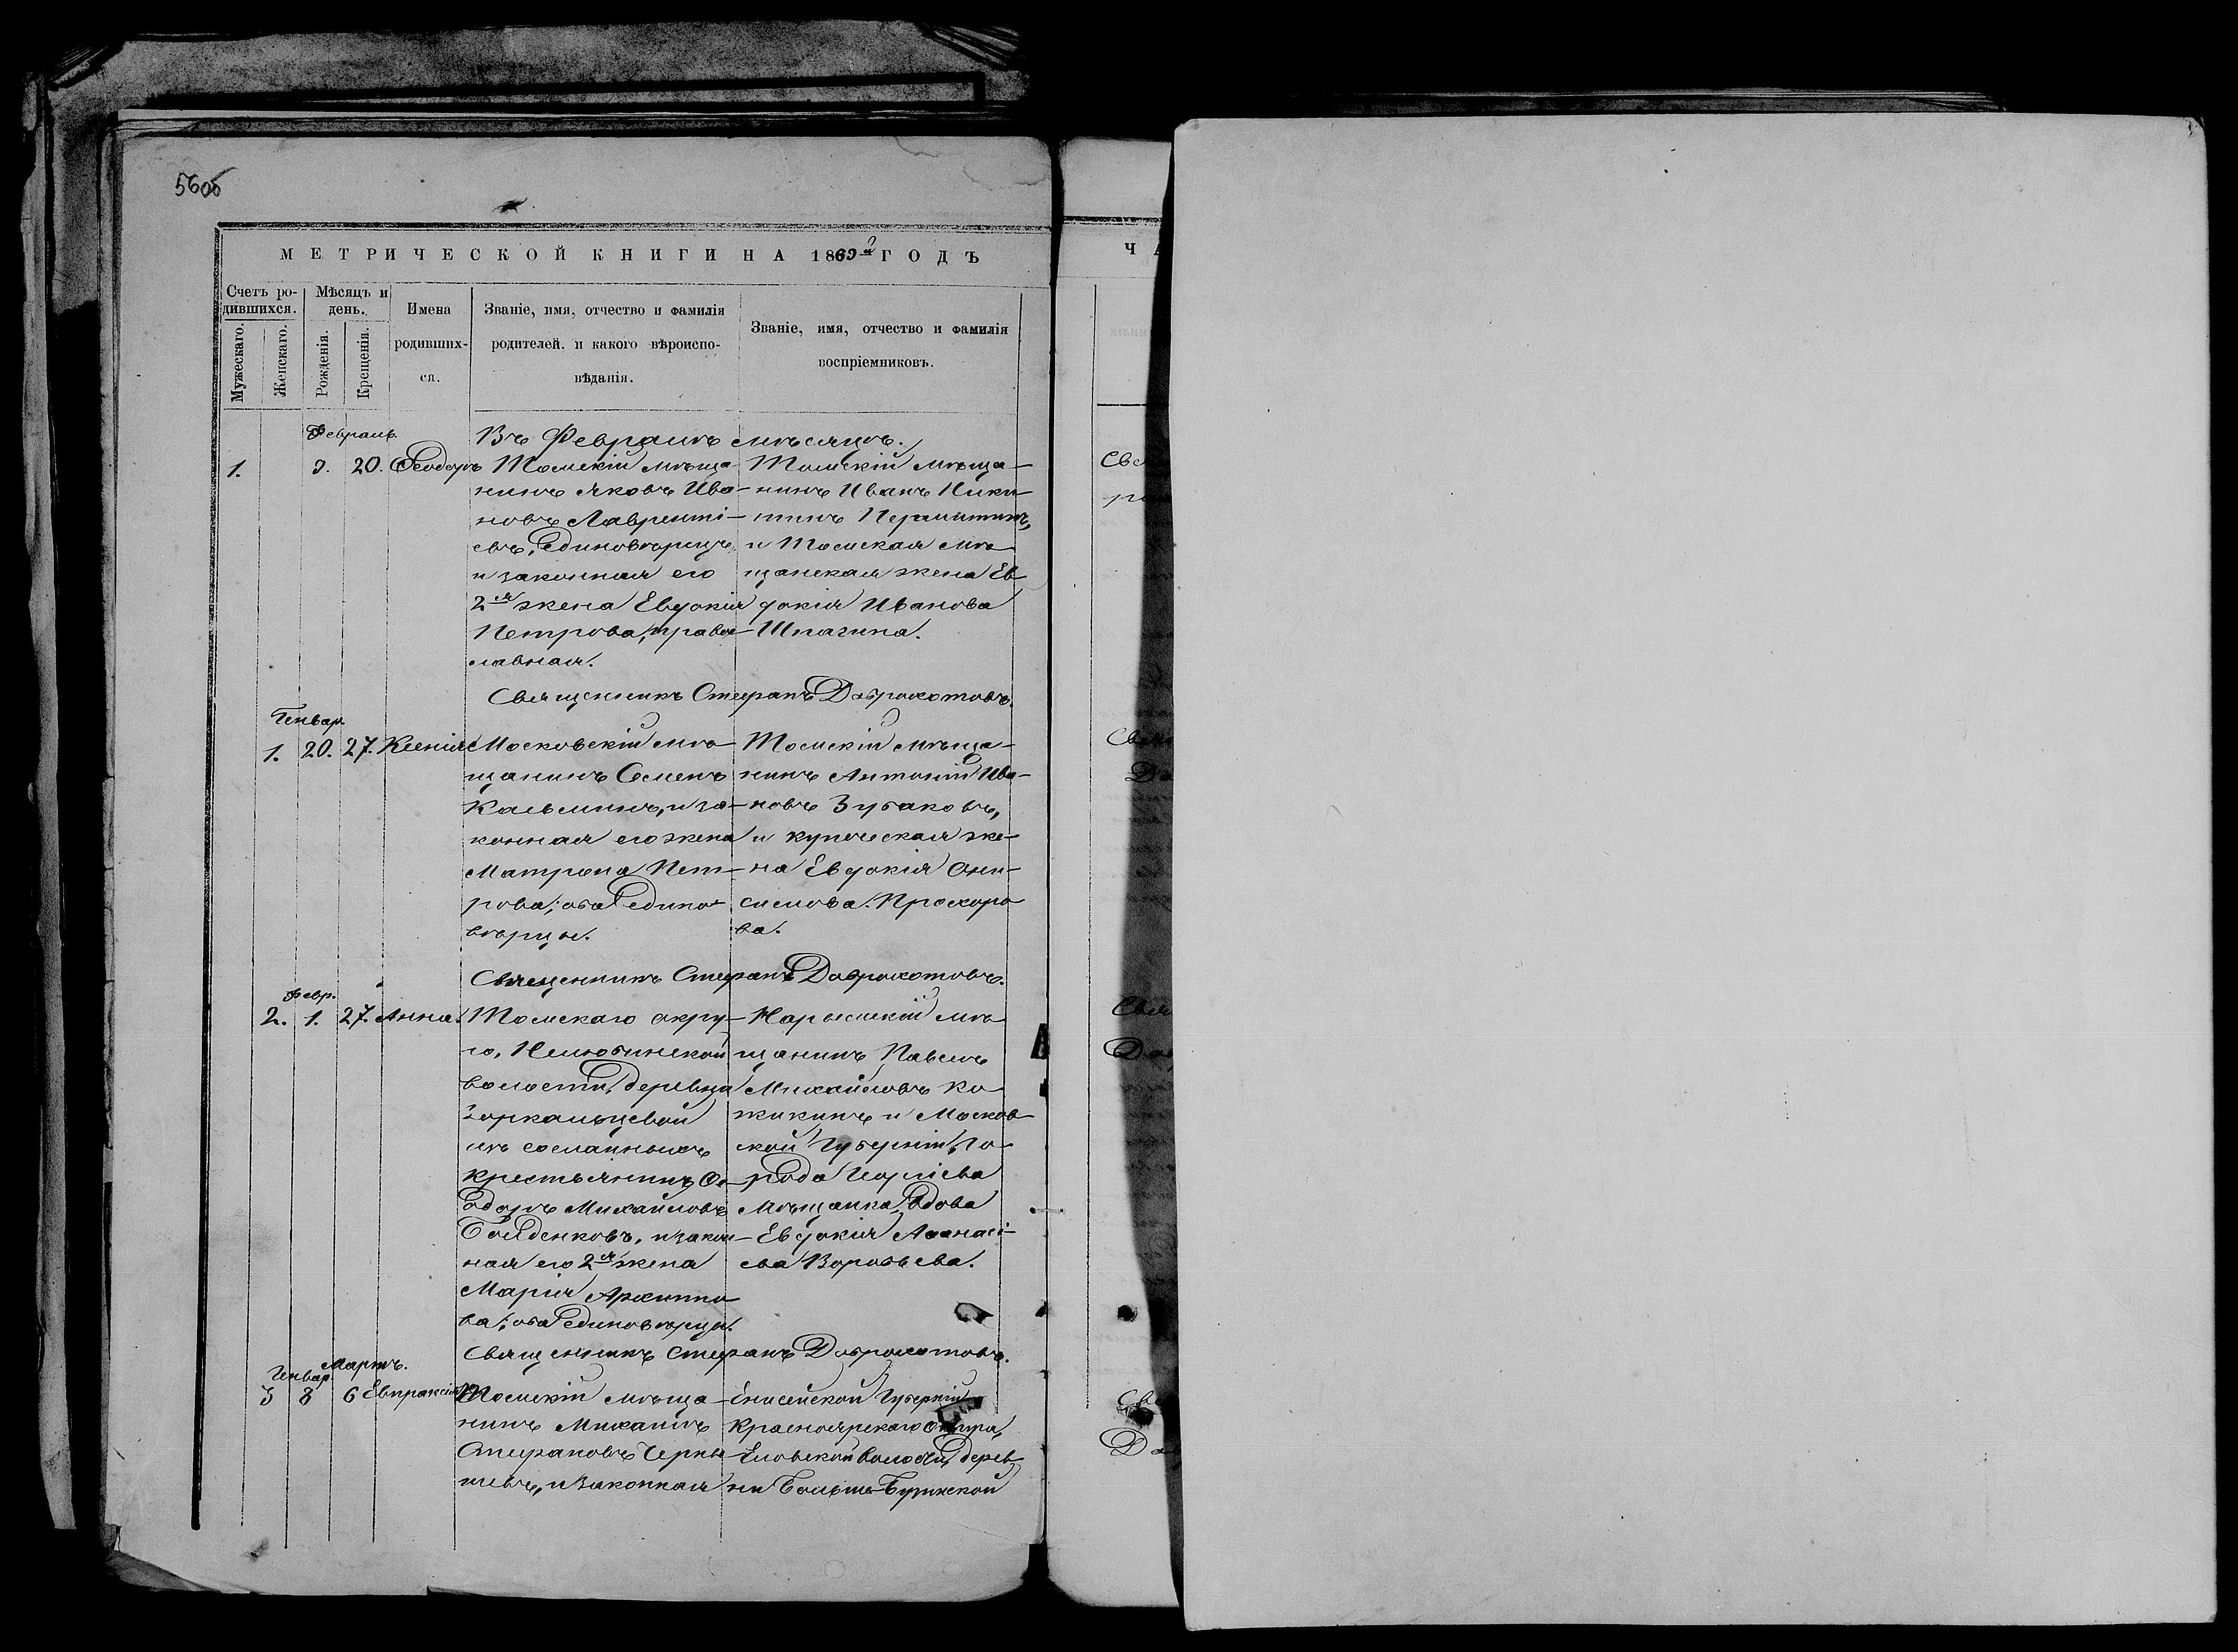 560б
МЕТРИЧЕСКОЙ КНИГИ НА 1869 ГОДЪ
Счетъ ро-
дившихся.
Мужескаго.
Женскаго.
Мѣсяцъ и
день.
Рожденія.
Крещенія.
Имена
родивших-
ся.
Званіе, имя, отчество и фамилія
родителей. и какого вѣроиспо-
вѣданія.
Званіе, имя, отчество и фамилія
воспріемниковъ.
Ч
Февраль.
Въ Февралѣ мѣсяцѣ.
1. 20. Ѳеодоръ
Томскій мѣща-
нинъ Яковъ Ива-
новъ Лавренті-
евъ, единовѣрецъ,
и законная его
2ая жена Евдокія
Петрова, право-
славная.
Томскій мѣща-
нинъ Иванъ Ники-
тинъ
и Томская мѣ-
щанская жена Ев-
докія Иванова
Шпагина.
Священникъ Стефанъ Доброхотовъ.
Генвар.
1. 20. 27. Ксенія
Московскій мѣ-
щанинъ Семенъ
Кальминъ, и за-
конная его жена
Матрона Пет-
рова; оба едино-
вѣрцы.
Томскій мѣща-
нинъ Антоній Ива-
новъ Зубаковъ,
и купеческая же-
на Евдокія Они-
симова Прохоро-
ва.
Священникъ Стефанъ Доброхотовъ.
Февр.
2. 1. 27. Анна.
Томскаго окру-
га, Нелюбинской
волости, деревни
Зоркальцевой
изъ сосланныхъ
крестьянинъ Ѳе-
одоръ Михайловъ
и закон-
ная его 2ая жена
Марія Архипо-
ва; оба единовѣрцы.
Нарымскій мѣ-
щанинъ Павелъ
Михайловъ Ко-
жикинъ и Москов-
ской Губерніи, го-
рода
мѣщанка, вдова
Евдокія Аѳанасі-
ева Воробьева.
Священникъ Стефанъ Доброхотовъ.
Генвар.
Мартъ.
3 8 6 Евпраксія
Томскій мѣща-
нинъ Михаилъ
Стефановъ Черны-
шевъ, и законная
Енисейской Губерніи
Красноярскаго Округа,
Еловской волости, дерев-
ни Больше-Бузимской